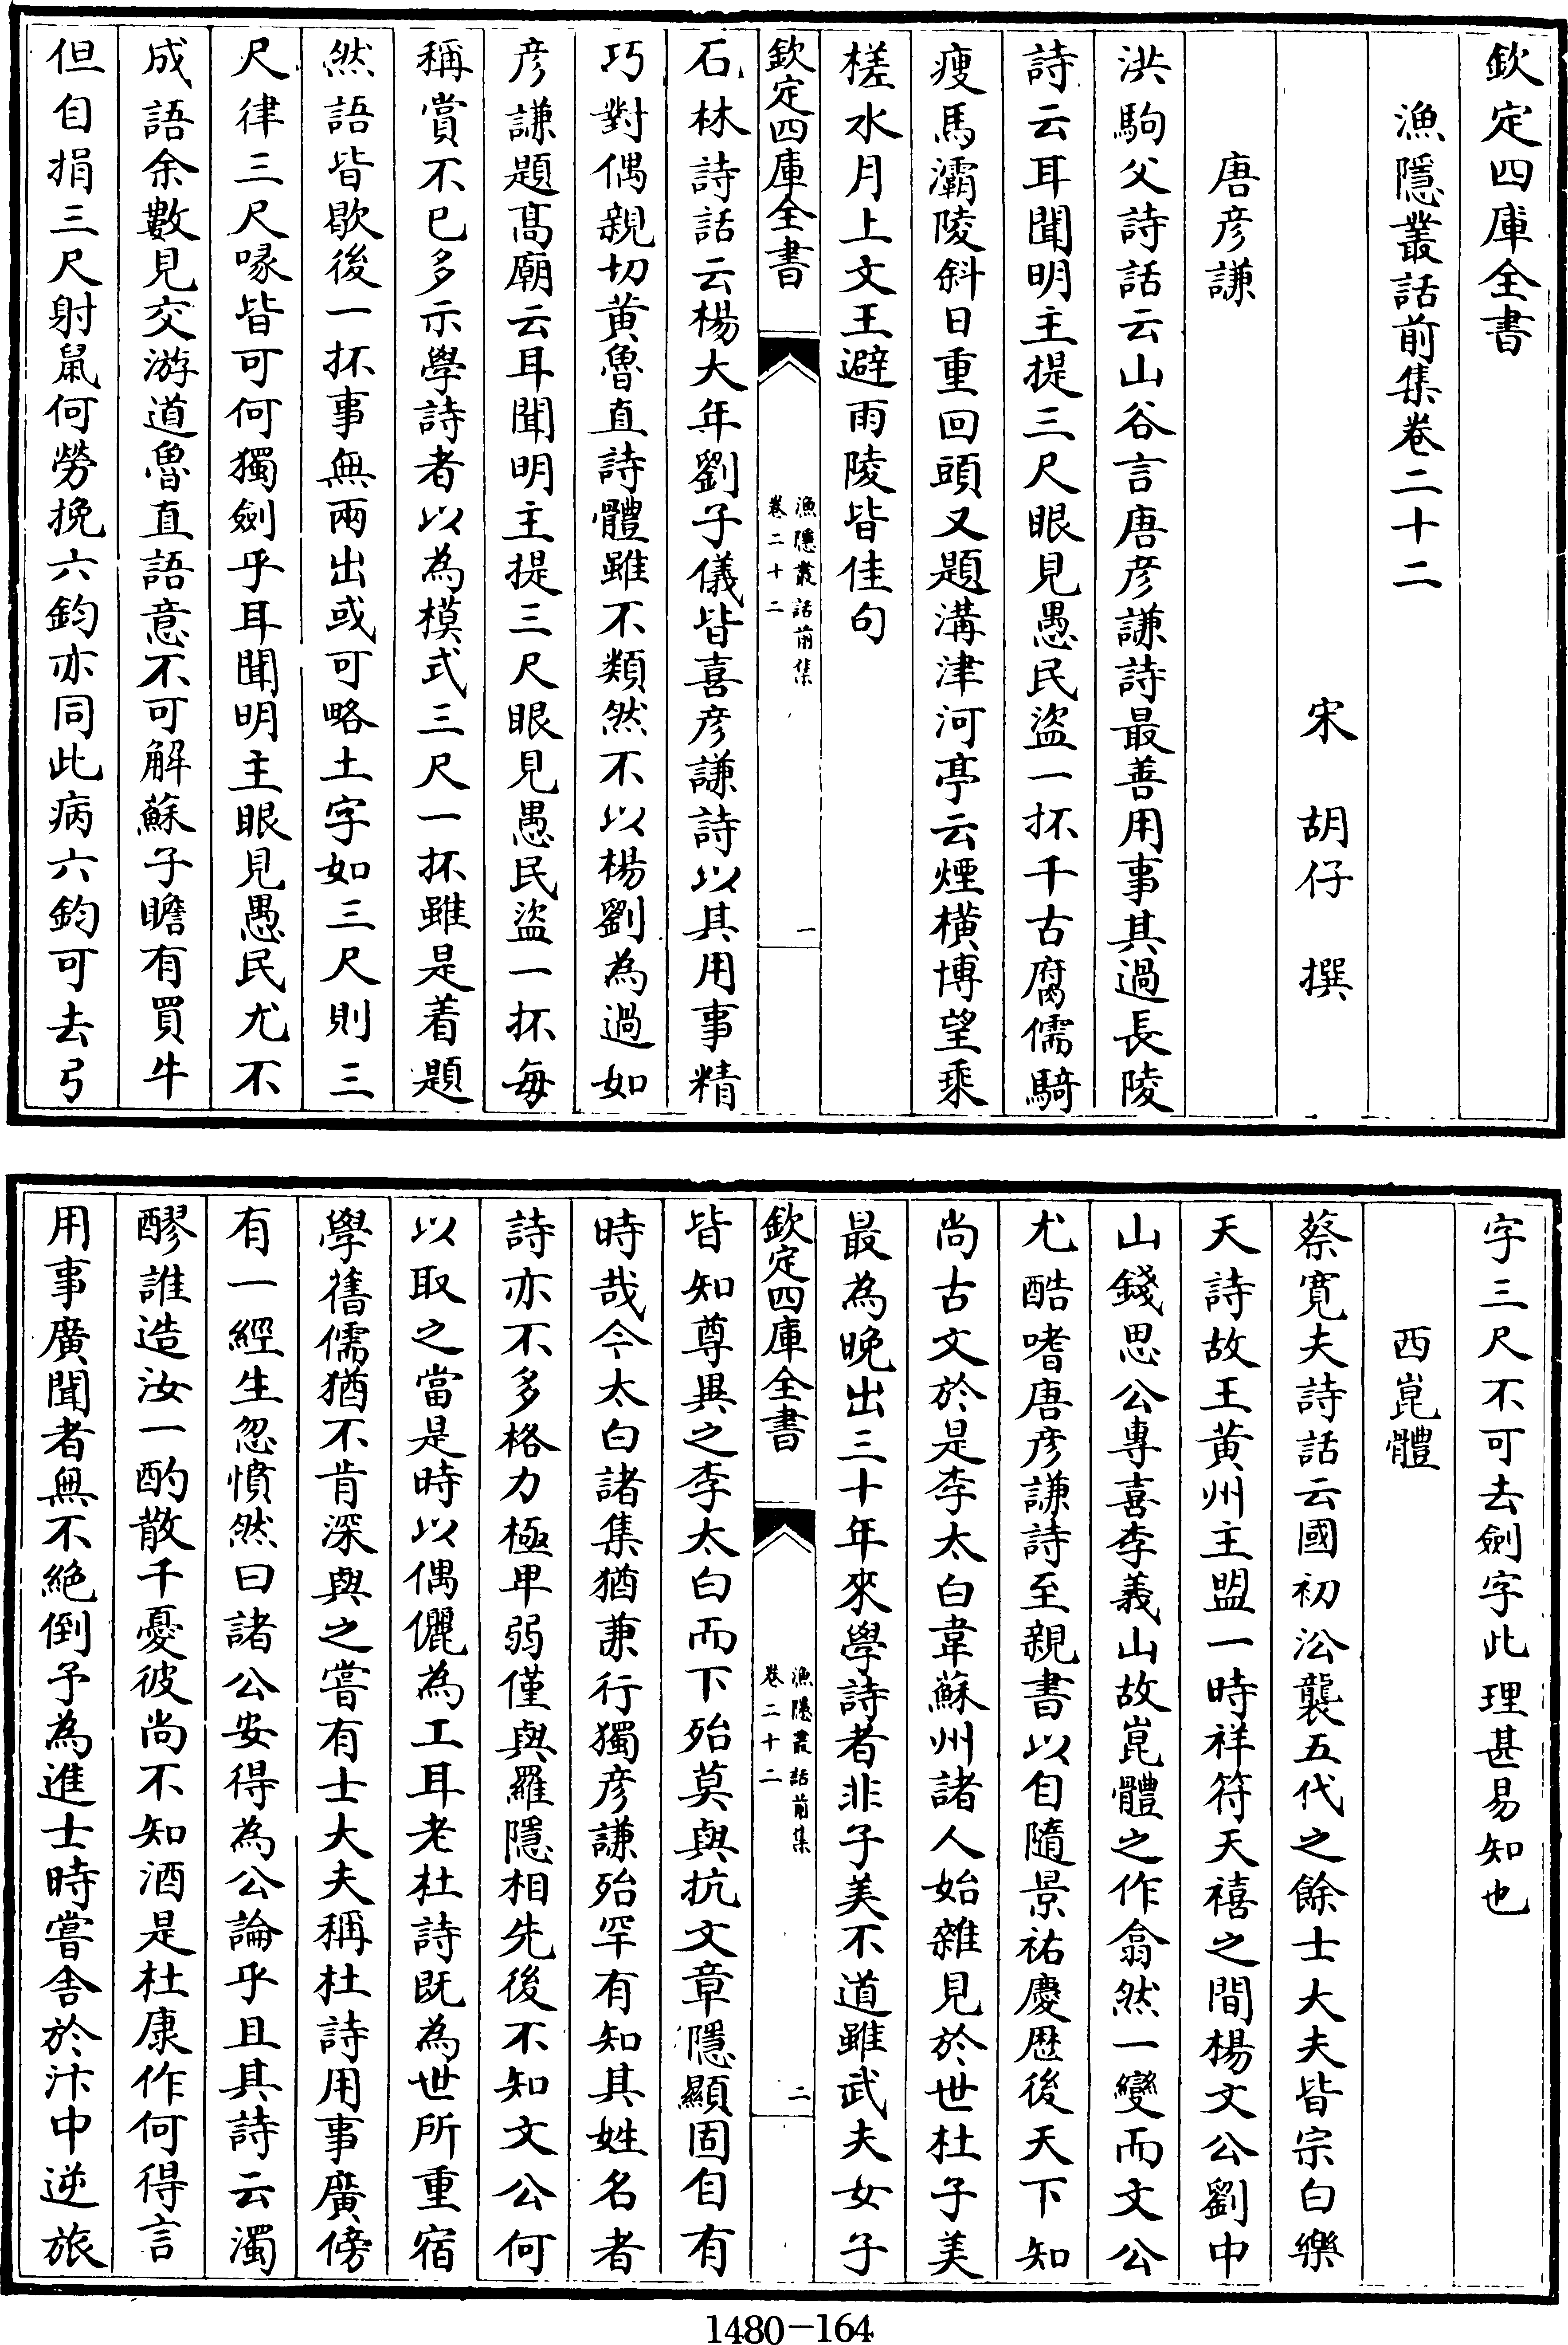 欽定四庫全書
漁隱叢話前集卷二十二
宋 胡仔 撰
唐彦謙
洪駒父詩話云山谷言唐彦謙詩最善用事其過長陵
詩云耳聞明主提三尺眼見愚民盜一抔千古腐儒騎
瘦馬灞陵斜日重回頭又題溝津河亭云煙橫博望乘
槎水月上文王避雨陵皆佳句
欽定四庫全書
漁隱叢話前集
卷二十二
一
石林詩話云楊大年劉子儀皆喜彦謙詩以其用事精
巧對偶親切黄魯直詩體雖不類然不以楊劉為過如
彦謙題髙廟云耳聞明主提三尺眼見愚民盜一抔每
稱賞不已多示學詩者以為模式三尺一抔雖是着題
然語皆歇後一抔事無兩出或可略土字如三尺則三
尺律三尺喙皆可何獨劍乎耳聞明主眼見愚民尤不
成語余數見交游道魯直語意不可解蘇子瞻有買牛
但自捐三尺射鼠何勞挽六鈞亦同此病六鈞可去弓
字三尺不可去劍字此理甚易知也
西崑體
蔡寛夫詩話云國初沿襲五代之餘士大夫皆宗白樂
天詩故王黄州主盟一時祥符天禧之間楊文公劉中
山錢思公專喜李義山故崑體之作翕然一變而文公
尤酷嗜唐彦謙詩至親書以自隨景祐慶厯後天下知
尚古文於是李太白韋蘇州諸人始雜見於世杜子美
最為晩出三十年來學詩者非子美不道雖武夫女子
欽定四庫全書
漁隱叢話前集
卷二十二
二
皆知尊異之李太白而下殆莫與抗文章隱顯固自有
時哉今太白諸集猶兼行獨彦謙殆罕有知其姓名者
詩亦不多格力極卑弱僅與羅隱相先後不知文公何
以取之當是時以偶儷為工耳老杜詩既為世所重宿
學舊儒猶不肯深與之嘗有士大夫稱杜詩用事廣傍
有一經生忽憤然曰諸公安得為公論乎且其詩云濁
醪誰造汝一酌散千憂彼尚不知酒是杜康作何得言
用事廣聞者無不絶倒予為進士時嘗舍於汴中逆旅
1480-164